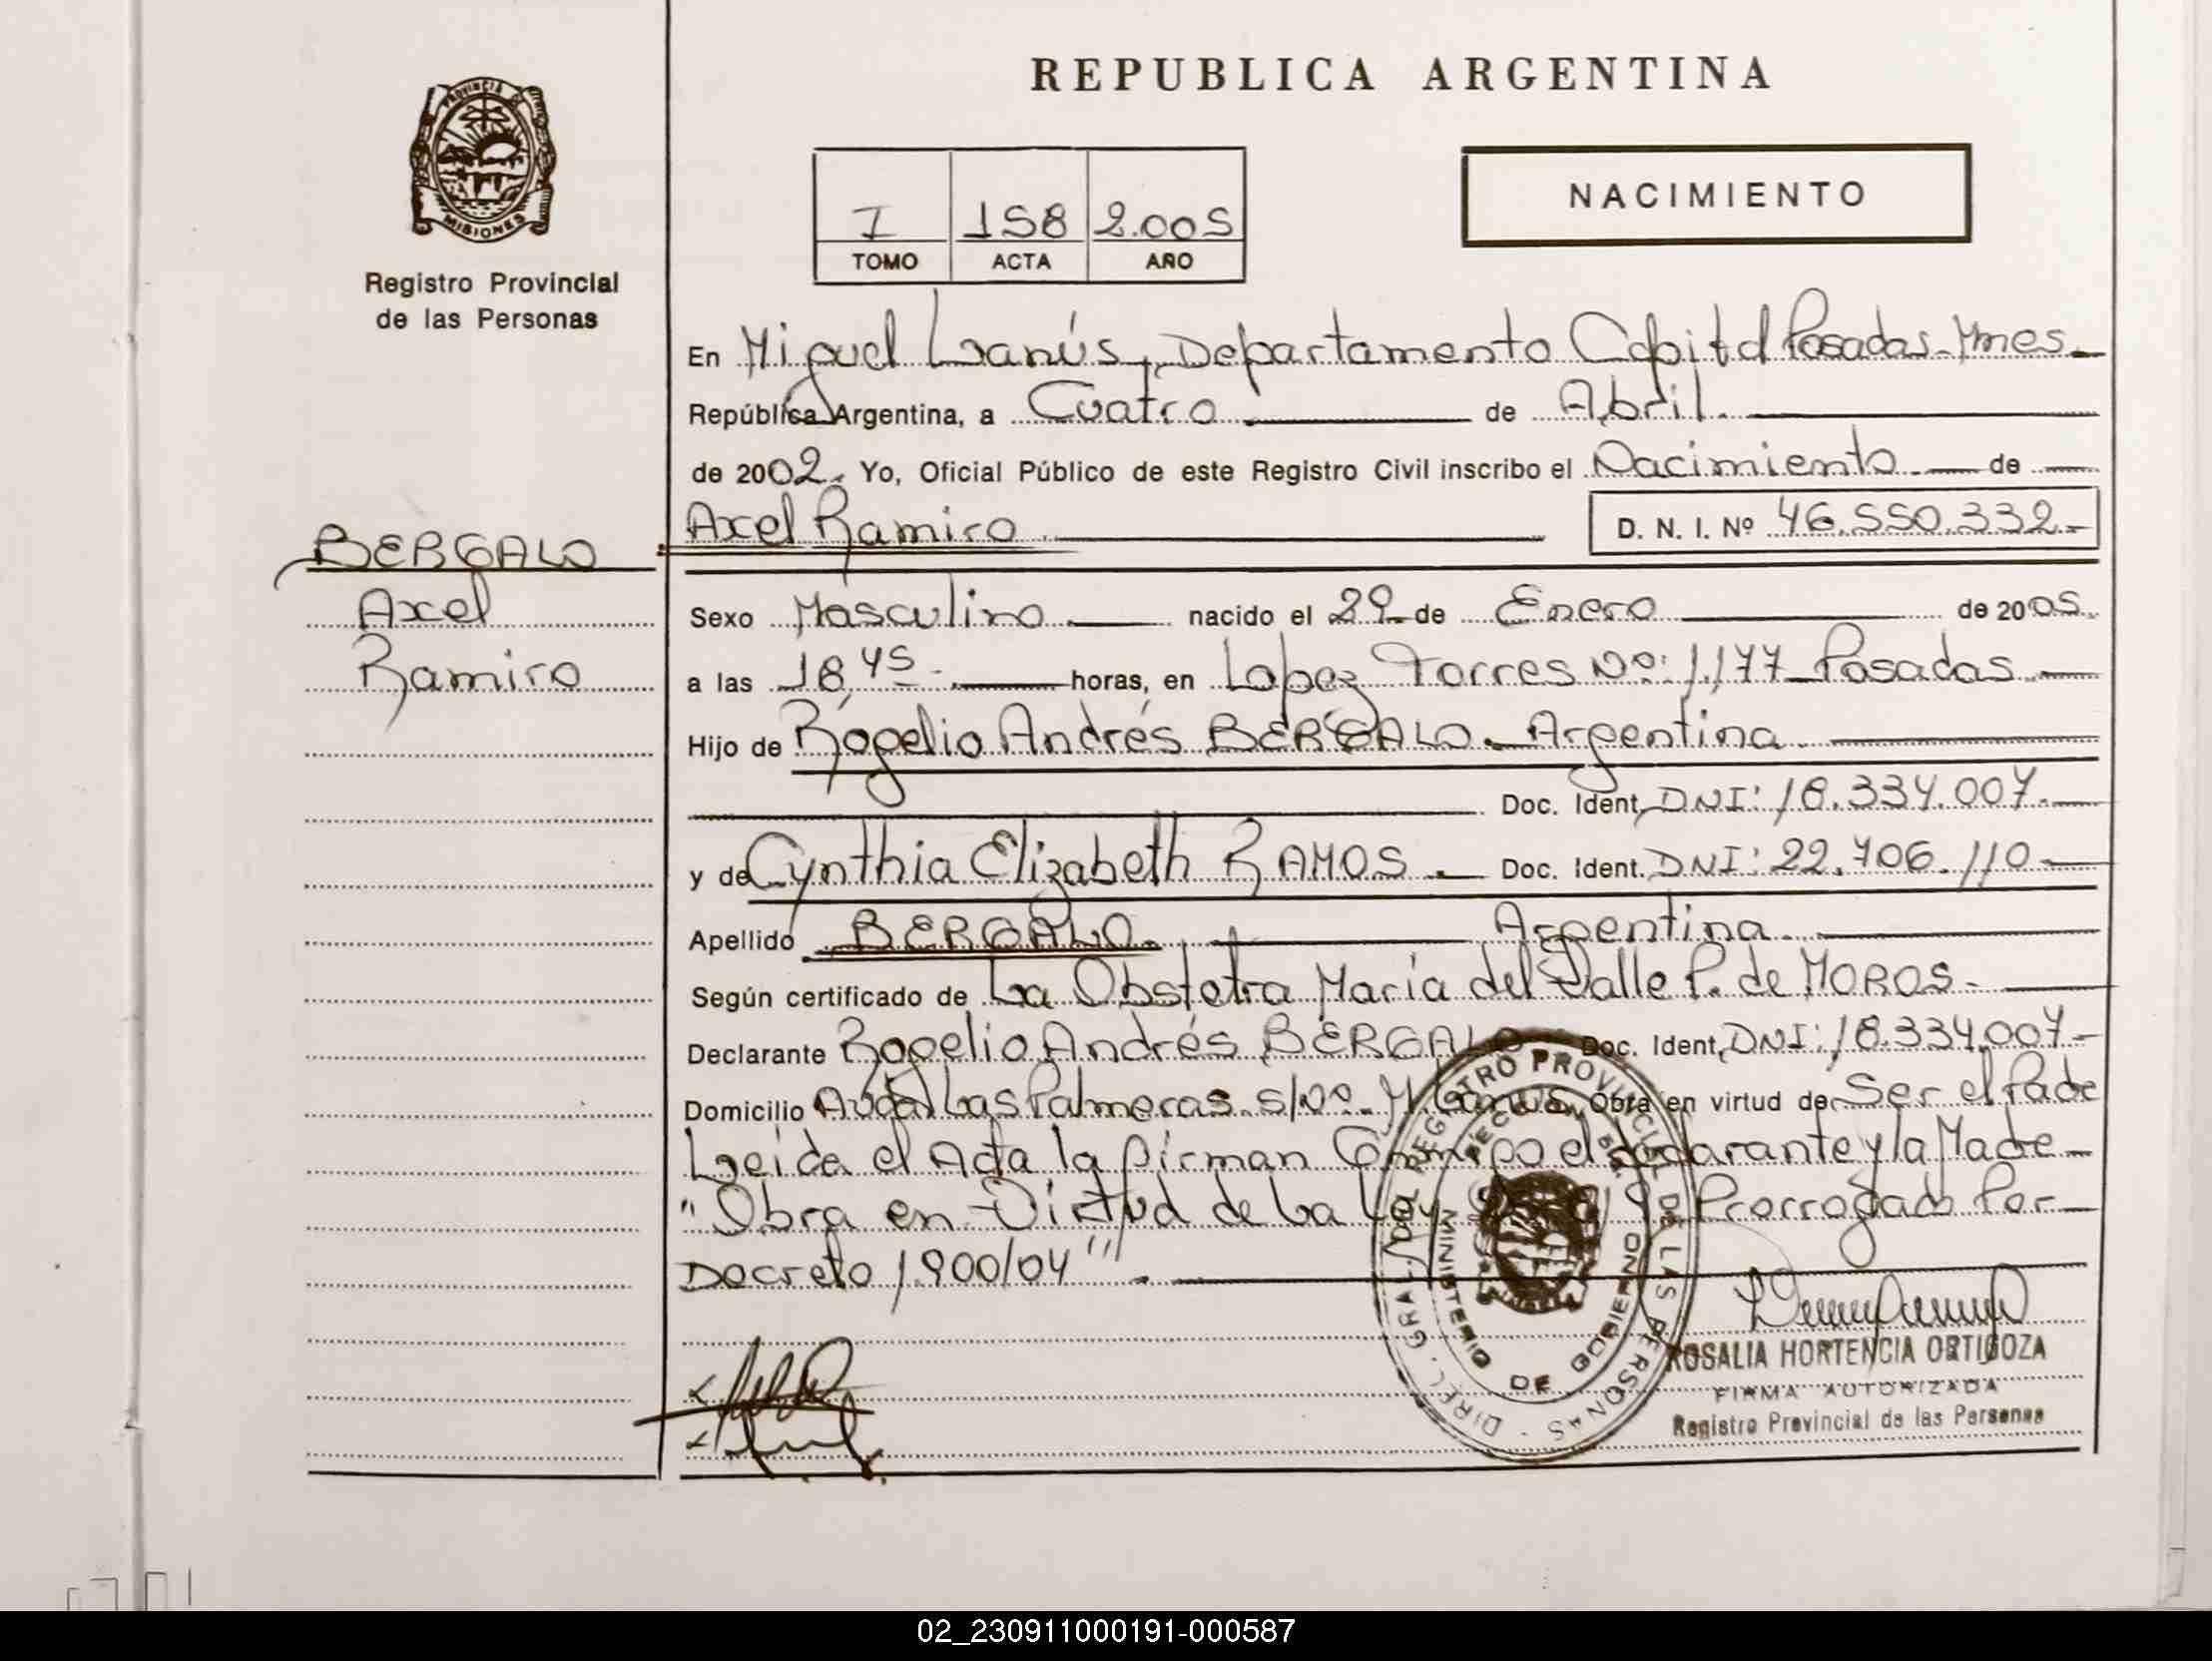 REPUBLICA ARGENTINA
PROVINCIA DE
MISIONES
Registro Provincial
de las Personas
I 158 2.005
TOMO ACTA AÑO
NACIMIENTO
En Miguel Lanús, Departamento Capital Posadas-Mnes.
República Argentina, a Cuatro de Abril
de 2002. Yo, Oficial Público de este Registro Civil inscribo el Nacimiento de
Axel Ramiro D. N. I. Nº 46.550.332.-
BERGALO
Axel
Ramiro
Sexo Masculino nacido el 29 de Enero de 2005.
a las 18,45 horas, en Lopez Torres Nº: 1.177 Posadas
Hijo de Rogelio Andrés BERGALO. Argentina
Doc. Ident. DNI: 18.334.007.
y de Cynthia Elizabeth RAMOS. Doc. Ident. DNI: 22.706.110
Apellido BERGALO. Argentina
Según certificado de La Obstetra María del Valle P. de MOROS.
Declarante Rogelio Andrés BERGALO Doc. Ident. DNI: 18.334.007-
Domicilio Avda Las Palmeras s/Nº. M. Lanús Obra en virtud de Ser el Padre
Leida el Acta la firman Conmigo el declarante y la Madre
"Obra en Virtud de La Ley Prorrogado Por
Decreto 1.900/04".
DIREC. GRAL. DEL REGISTRO PROVINCIAL DE LAS PERSONAS
MINISTERIO DE GOBIERNO
ROSALIA HORTENCIA ORTIGOZA
FIRMA AUTORIZADA
Registro Provincial de las Personas
02_230911000191-000587